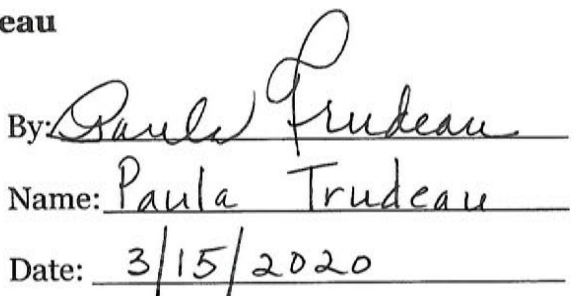 eau
By: Paula Trudeau
Name: Paula Trudeau
Date: 3/15/2020